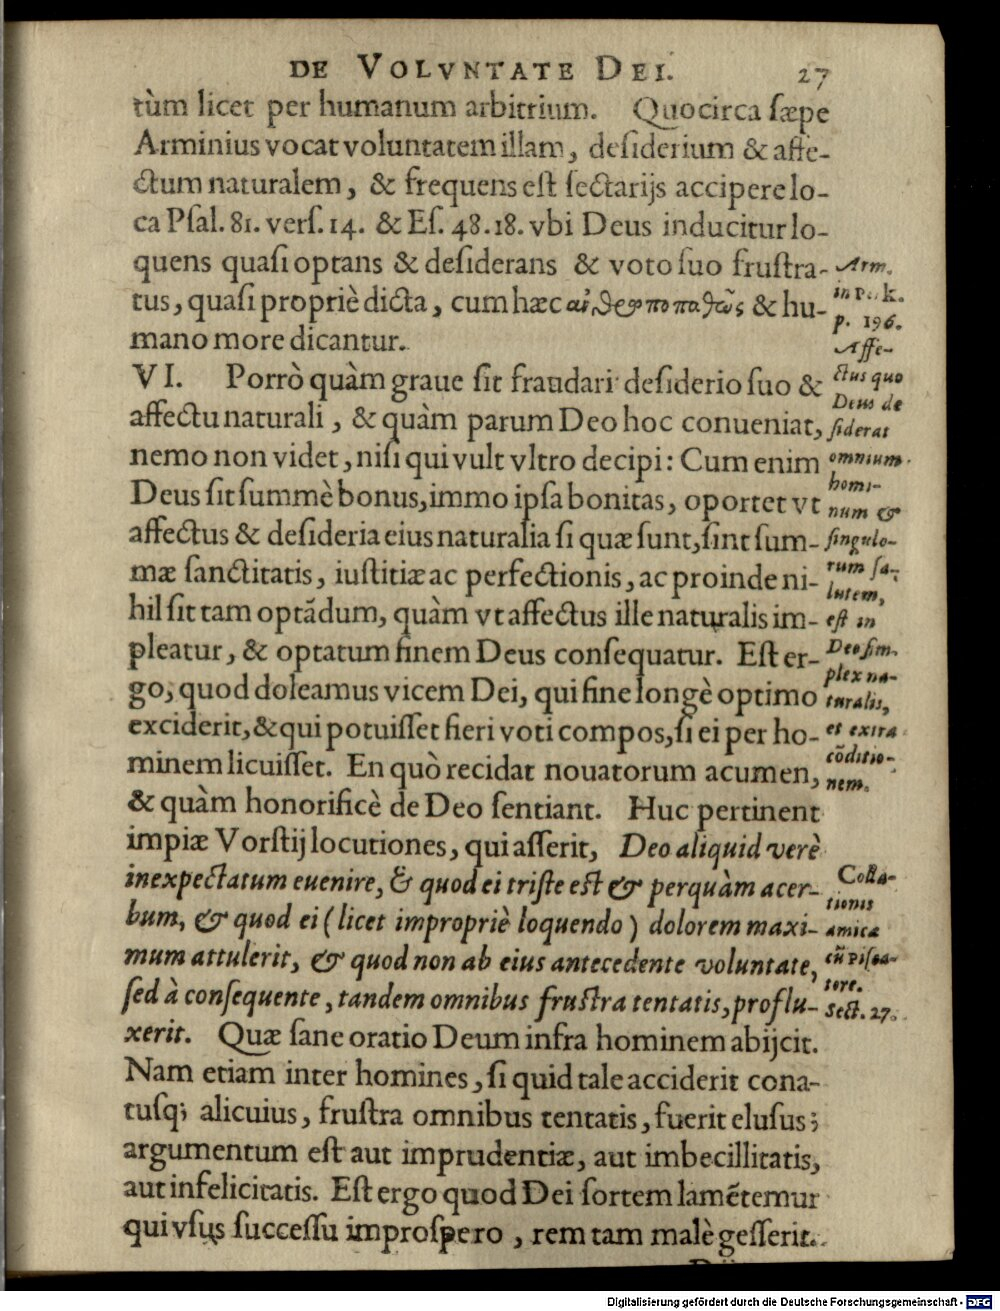 DE VOLVNTATE DEI. 27
tùm licet per humanum arbitrium. Quocirca sæpe
Arminius vocat voluntatem illam, desiderium & affe-
ctum naturalem, & frequens est sectarijs accipere lo-
ca Psal. 81. vers. 14. & Es. 48. 18. vbi Deus inducitur lo-
quens quasi optans & desiderans & voto suo frustra-
tus, quasi propriè dicta, cum hæc & hu-
mano more dicantur.
VI. Porrò quàm graue sit fraudari desiderio suo &
affectu naturali, & quàm parum Deo hoc conueniat,
nemo non videt, nisi qui vult vltro decipi: Cum enim
Deus sit summè bonus, immo ipsa bonitas, oportet vt
affectus & desideria eius naturalia si quæ sunt, sint sum-
mæ sanctitatis, iustitiæ ac perfectionis, ac proinde ni-
hil sit tam optādum, quàm vt affectus ille naturalis im-
pleatur, & optatum finem Deus consequatur. Est er-
go, quod doleamus vicem Dei, qui fine longè optimo
exciderit, & qui potuisset fieri voti compos, si ei per ho-
minem licuisset. En quò recidat nouatorum acumen,
& quàm honorificè de Deo sentiant. Huc pertinent
impiæ Vorstij locutiones, qui asserit, Deo aliquid verè
inexpectatum euenire, & quod ei triste est & perquàm acer-
bum, & quod ei (licet impropriè loquendo) dolorem maxi-
mum attulerit, & quod non ab eius antecedente voluntate,
sed à consequente, tandem omnibus frustra tentatis, proflu-
xerit. Quæ sane oratio Deum infra hominem abijcit.
Nam etiam inter homines, si quid tale acciderit cona-
tusq; alicuius, frustra omnibus tentatis, fuerit elusus;
argumentum est aut imprudentiæ, aut imbecillitatis,
aut infelicitatis. Est ergo quod Dei sortem lamētemur
qui vsus successu improspero, rem tam malè gesserit.
Arm.
in
p. 196.
Affe-
ctus quo
Deus de
siderat
omnium
homi-
num &
singulo-
rum sa-
lutem,
est in
Deo sim-
plex na-
turalis,
et extra
cōditio-
nem.
Colla-
tionis
amica
cū Pisca-
tore.
sect. 27.
Digitalisierung gefördert durch die Deutsche Forschungsgemeinschaft - DFG